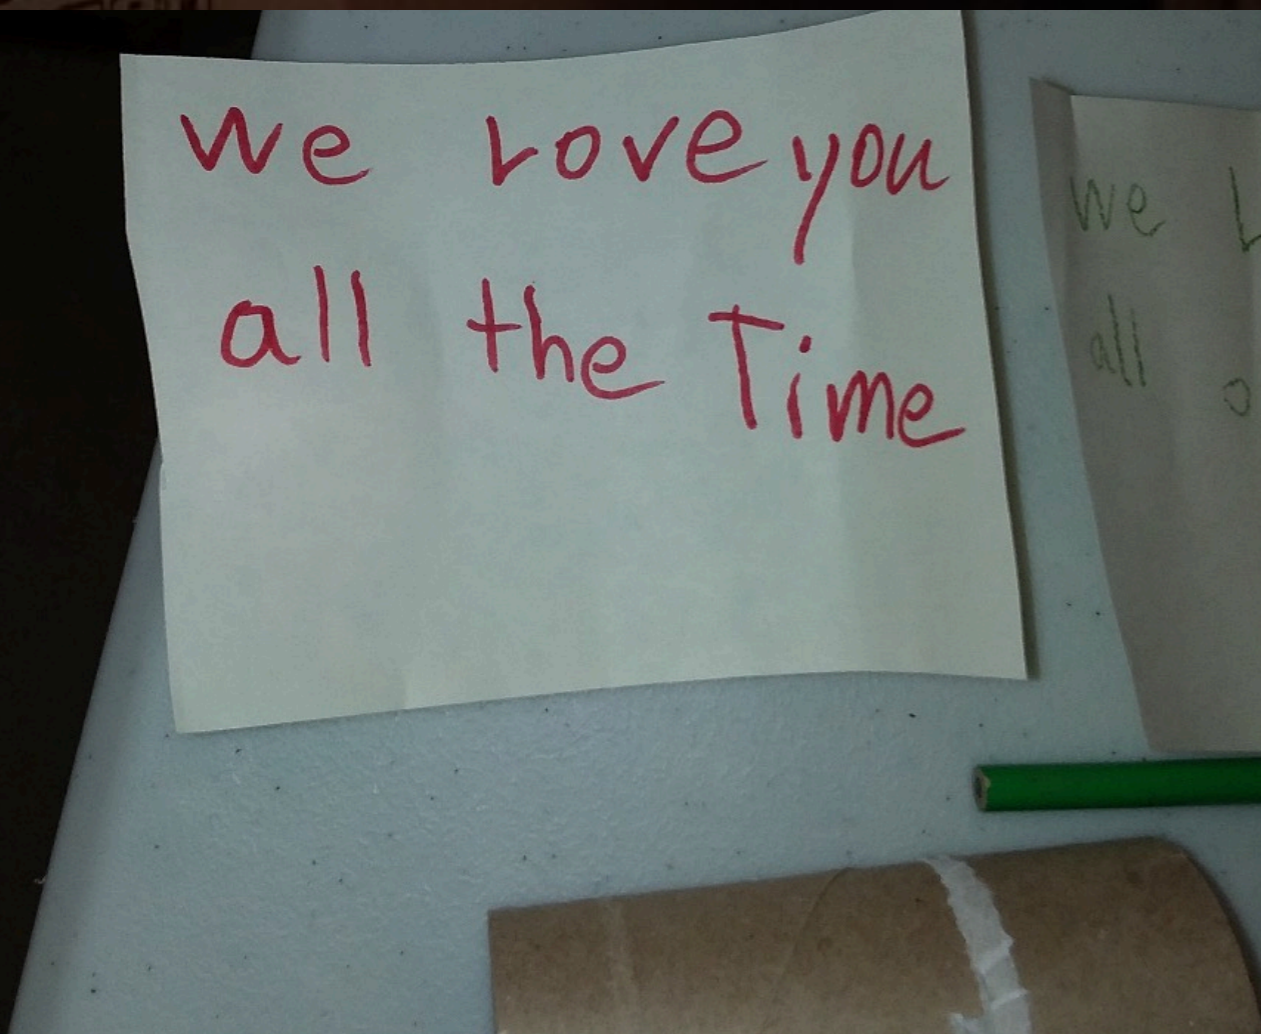 we Love you
all the Time
we L
all o